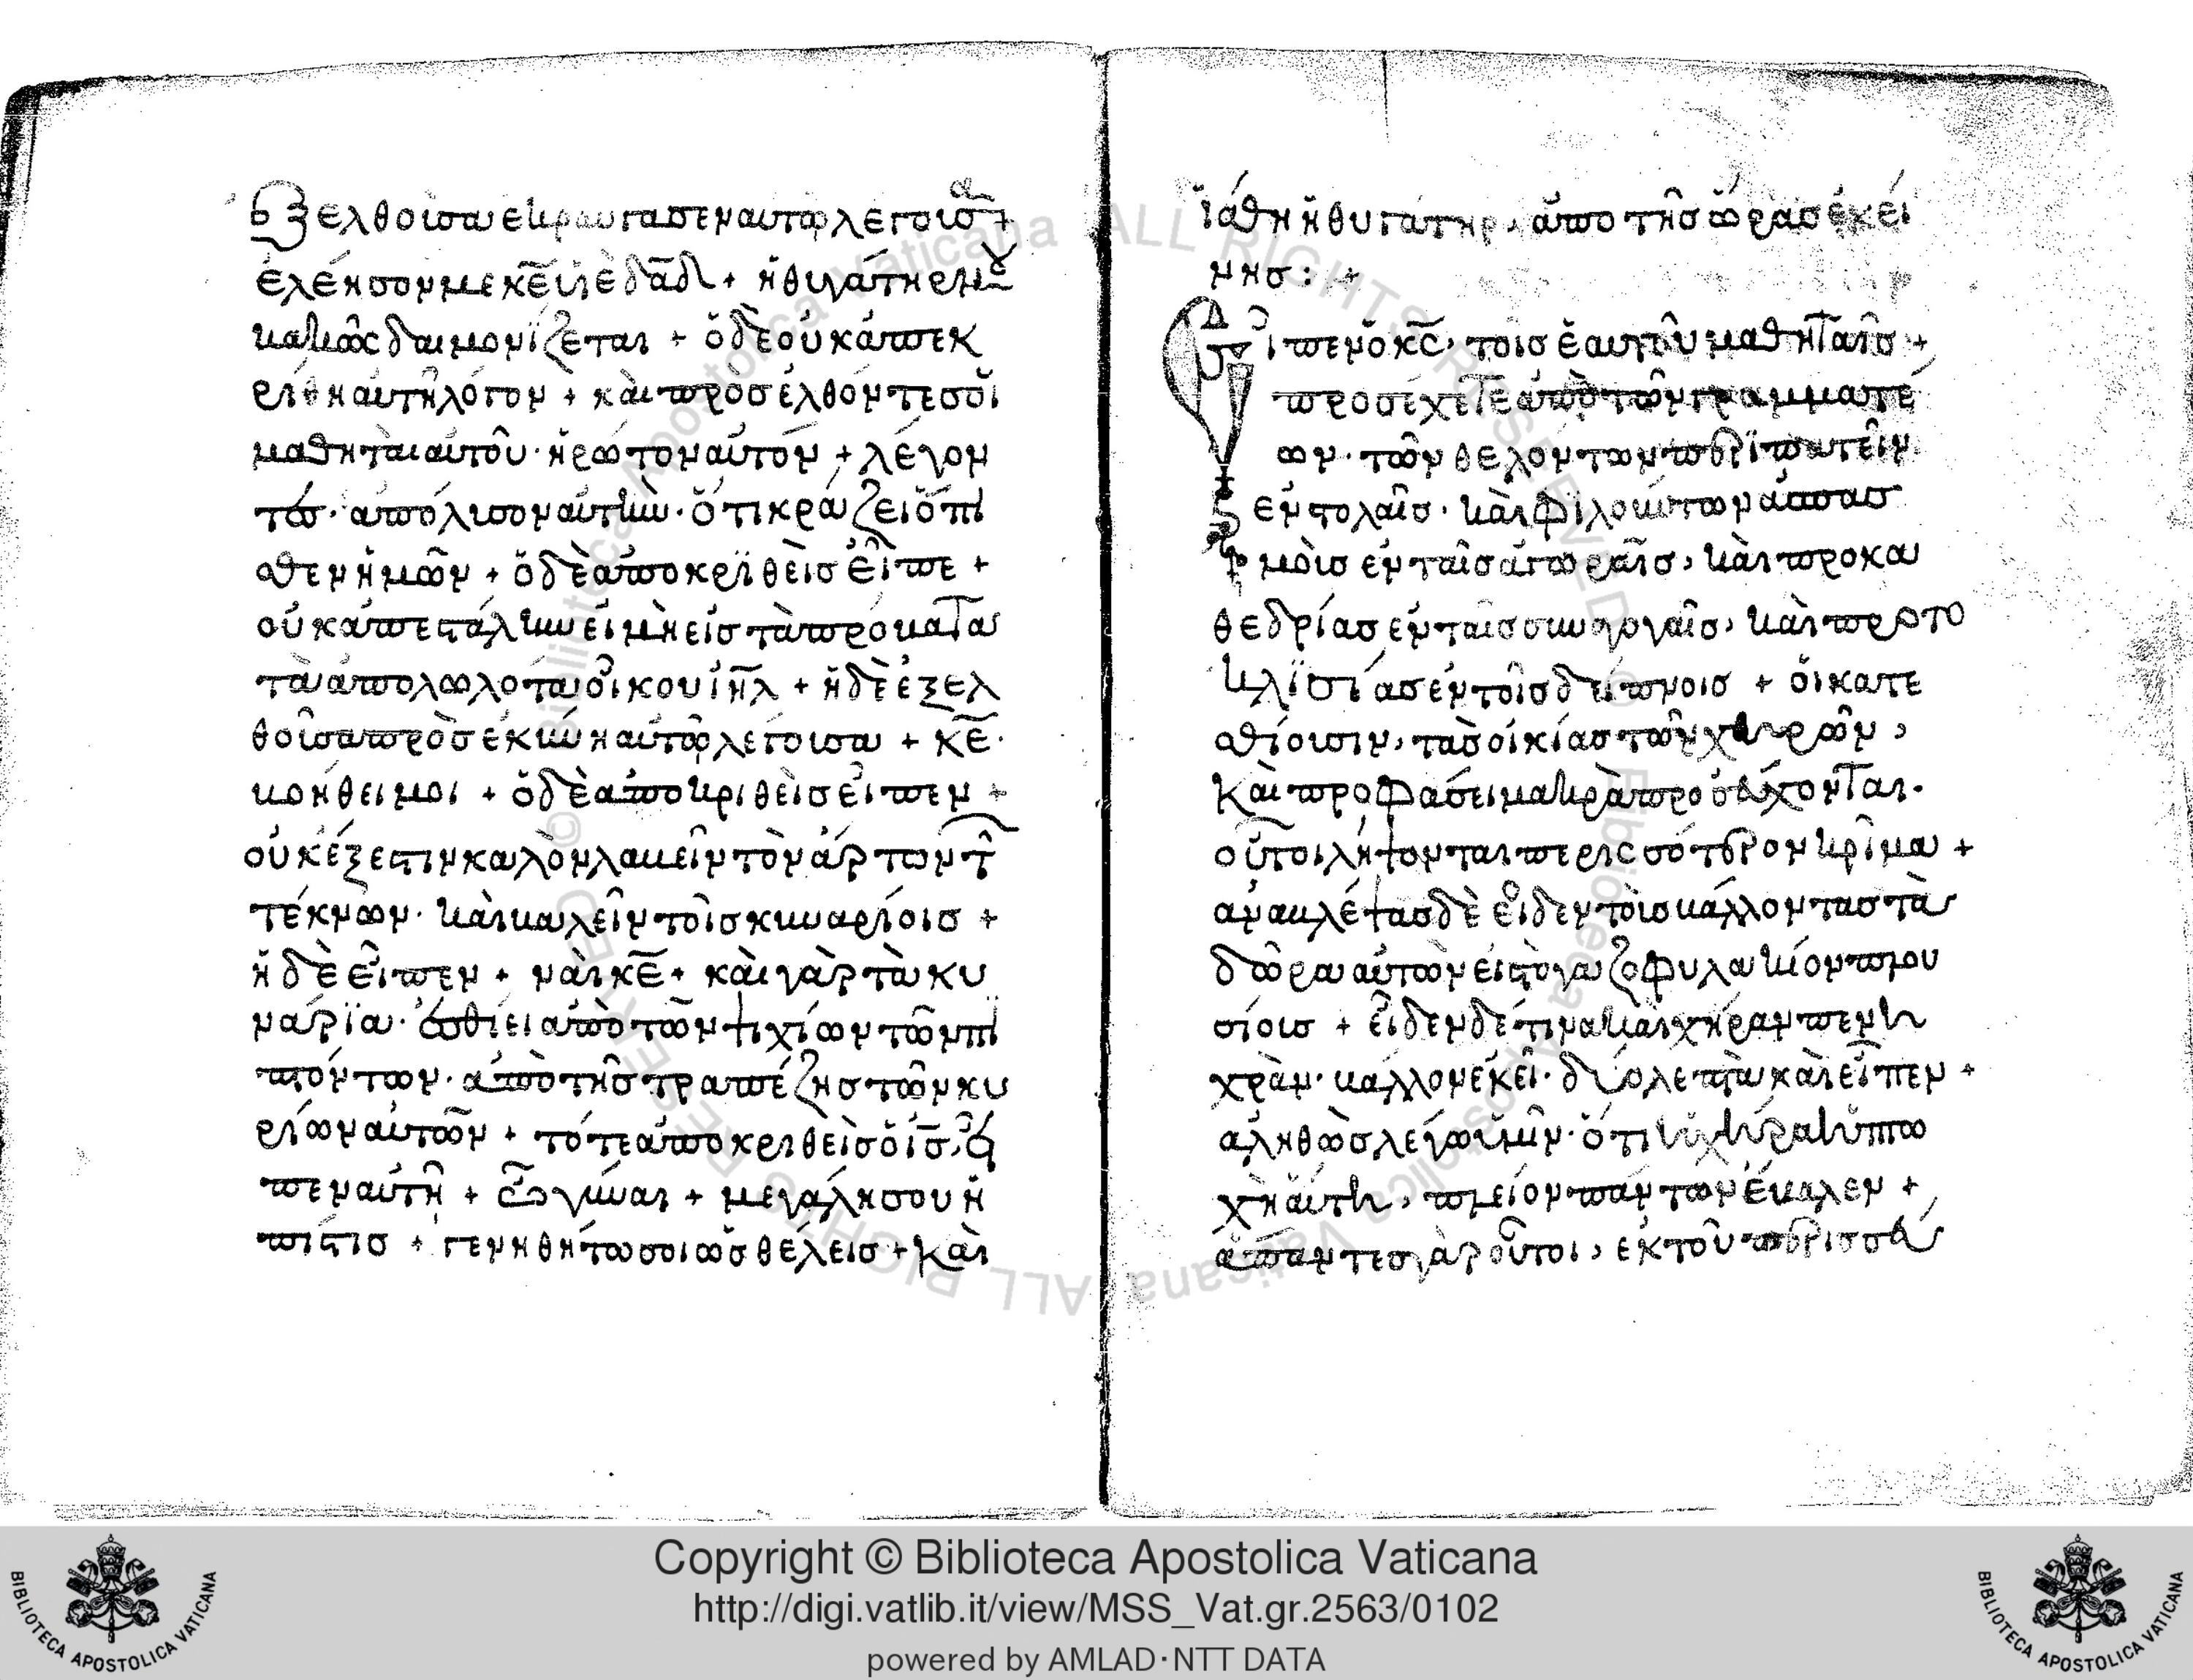 ἐξελθοῦσα ἐκραύγασεν αυτῶ λέγουσα +
ἐλέησον μὲ κε̅ υἱὲ δα̅δ + ἡ θυγάτηρ μου
κακῶς δαιμονΐζεται + ὁ δὲ οὐκ ἀπεκ
ρίθη αὐτῆ λόγον + καὶ προσελθόντες οἱ
μαθηταὶ αὐτοῦ · ἠρώτον αὐτόν + λέγον
τές · ἀπόλυσον αὐτὴν · ὅτι κράζει ὄπι
σθεν ἡμῶν + ὁ δὲ ἀποκρϊθεὶς εἶπε +
οὐκ ἀπεστάλην εἰ μὴ εἰς τὰ πρόβατα
τὰ ἀπολωλότα οἴκου ἰη̅λ + ἡ δὲ ἐξελ
θοῦσα προσεκύνη αὐτῶ λέγουσα + κε̅ ·
βοήθει μοι + ὁ δὲ ἀποκριθεὶς εἶπεν +
οὐκ έξεστιν καλὸν λαβεῖν τὸν ἄρτων τῶν
τέκνων · καὶ βαλεῖν τοῖς κυναρίοις +
ἡ δὲ εἶπεν + ναὶ κε̅ + καὶ γὰρ τὰ κυ
νάρϊα · ἐσθίει ἀπὸ τῶν ψιχίων τῶν πι
πτόντων · ἀπὸ τῆς τραπέζης τῶν κυ
ρίων αὐτῶν + τότε ἀποκριθεὶς ὁ ις̅, εἶ
πεν αὐτῆ + ὦ γύναι + μεγάλη σου ἡ
πίστις + γενηθήτω σοι ὡς θέλεις + Καὶ
ϊάθη ἡ θυγάτηρ, ἀπο τῆς ὥρας ἐκεί
νης : +
Εἶπεν ὁ κς̅, τοῖς ἑαυτοῦ μαθηταῖς +
προσέχετε ἀπὸ τῶν γραμματέ
ων · τῶν θελόντων περϊπατεῖν
ἐν στολαῖς · καὶ φϊλούντων ἀσπασ
μοὶς ἐν ταῖς ἀγωραῖς, καὶ προκα
θεδρίας ἐν ταῖς συναγογαῖς, καὶ προτο
κλϊσίας ἐν τοῖς δείπνοις + οἱ κατε
σθίουσιν, τὰς οἰκίας τῶν χηρῶν,
Καὶ προφάσει μακρὰ προσεύχονται ·
οὗτοι λήψονται περισσότερον κρῖμα +
ἀναβλέψας δὲ εἶδεν τοὶς βάλλοντας τὰ
δῶρα αὐτῶν εἰς τὸ γαζοφυλάκιον πλου
σίοις + εἶδεν δέ τινα καὶ χήραν πενη
χρὰν · βάλλον ἐκεῖ · δύο λεπτὰ καὶ εἶπεν +
ἀληθῶς λέγω ὑμῖν · ὅτι ἡ χήρα ἡ πτω
χὴ αὕτη, πλεῖον πάντων ἔβαλεν +
ἅπαντες γὰρ οὗτοι, ἐκ τοῦ περισσεύ
Copyright © Biblioteca Apostolica Vaticana
http://digi.vatlib.it/view/MSS_Vat.gr.2563/0102
powered by AMLAD·NTT DATA
BIBLIOTECA APOSTOLICA VATICANA
BIBLIOTECA APOSTOLICA VATICANA